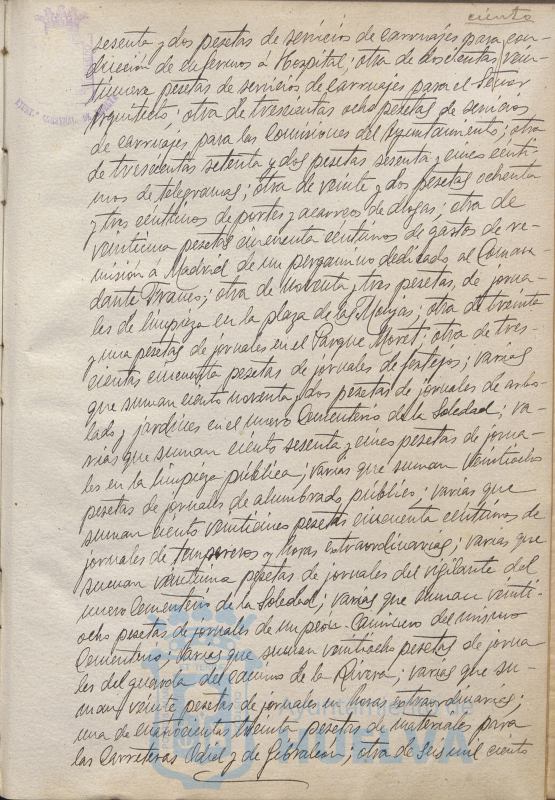 ciento
sesenta y dos pesetas de servicios de carruajes para con-
ducción de enfermos á Hospital; otra de doscientas vein-
tinueve pesetas de servicios de carruajes para el Señor
Arquitecto; otra de trescientas ocho pesetas de servicios
de carruajes para las Comisiones del Ayuntamiento; otra
de trescientas setenta y dos pesetas sesenta y cinco cénti-
mos de telegramas; otra de veinte y dos pesetas ochenta
y tres céntimos de portes y acarreos de drogas; otra de
veintiuna pesetas cincuenta céntimos de gastos de re-
misión á Madrid de un pergamino dedicado al Coman-
dante Franco; otra de noventa y tres pesetas de jorna-
les de limpieza en la plaza de las Monjas; otra de treinta
y una pesetas de jornales en el Parque Moret; otra de tres-
cientas cincuenta pesetas de jornales de festejos; varias
que suman ciento noventa y dos pesetas de jornales de arbo-
lado y jardines en el nuevo Cementerio de la Soledad; va-
rias que suman ciento sesenta y cinco pesetas de jorna-
les en la limpieza pública; varias que suman veintiocho
pesetas de jornales de alumbrado público; varias que
suman ciento veinticinco pesetas cincuenta céntimos de
jornales de temporeros y horas extraordinarias; varias que
suman veintiuna pesetas de jornales del vigilante del
nuevo Cementerio de la Soledad; varias que suman veinti-
ocho pesetas de jornales de un peón-caminero del mismo
Cementerio; varias que suman veintiocho pesetas de jorna-
les del guarda del camino de la Rivera; varias que su-
man veinte pesetas de jornales en horas extraordinarias;
una de cuatrocientas treinta pesetas de materiales para
las Carreteras Odiel y de Gibraleón; otra de seis mil ciento